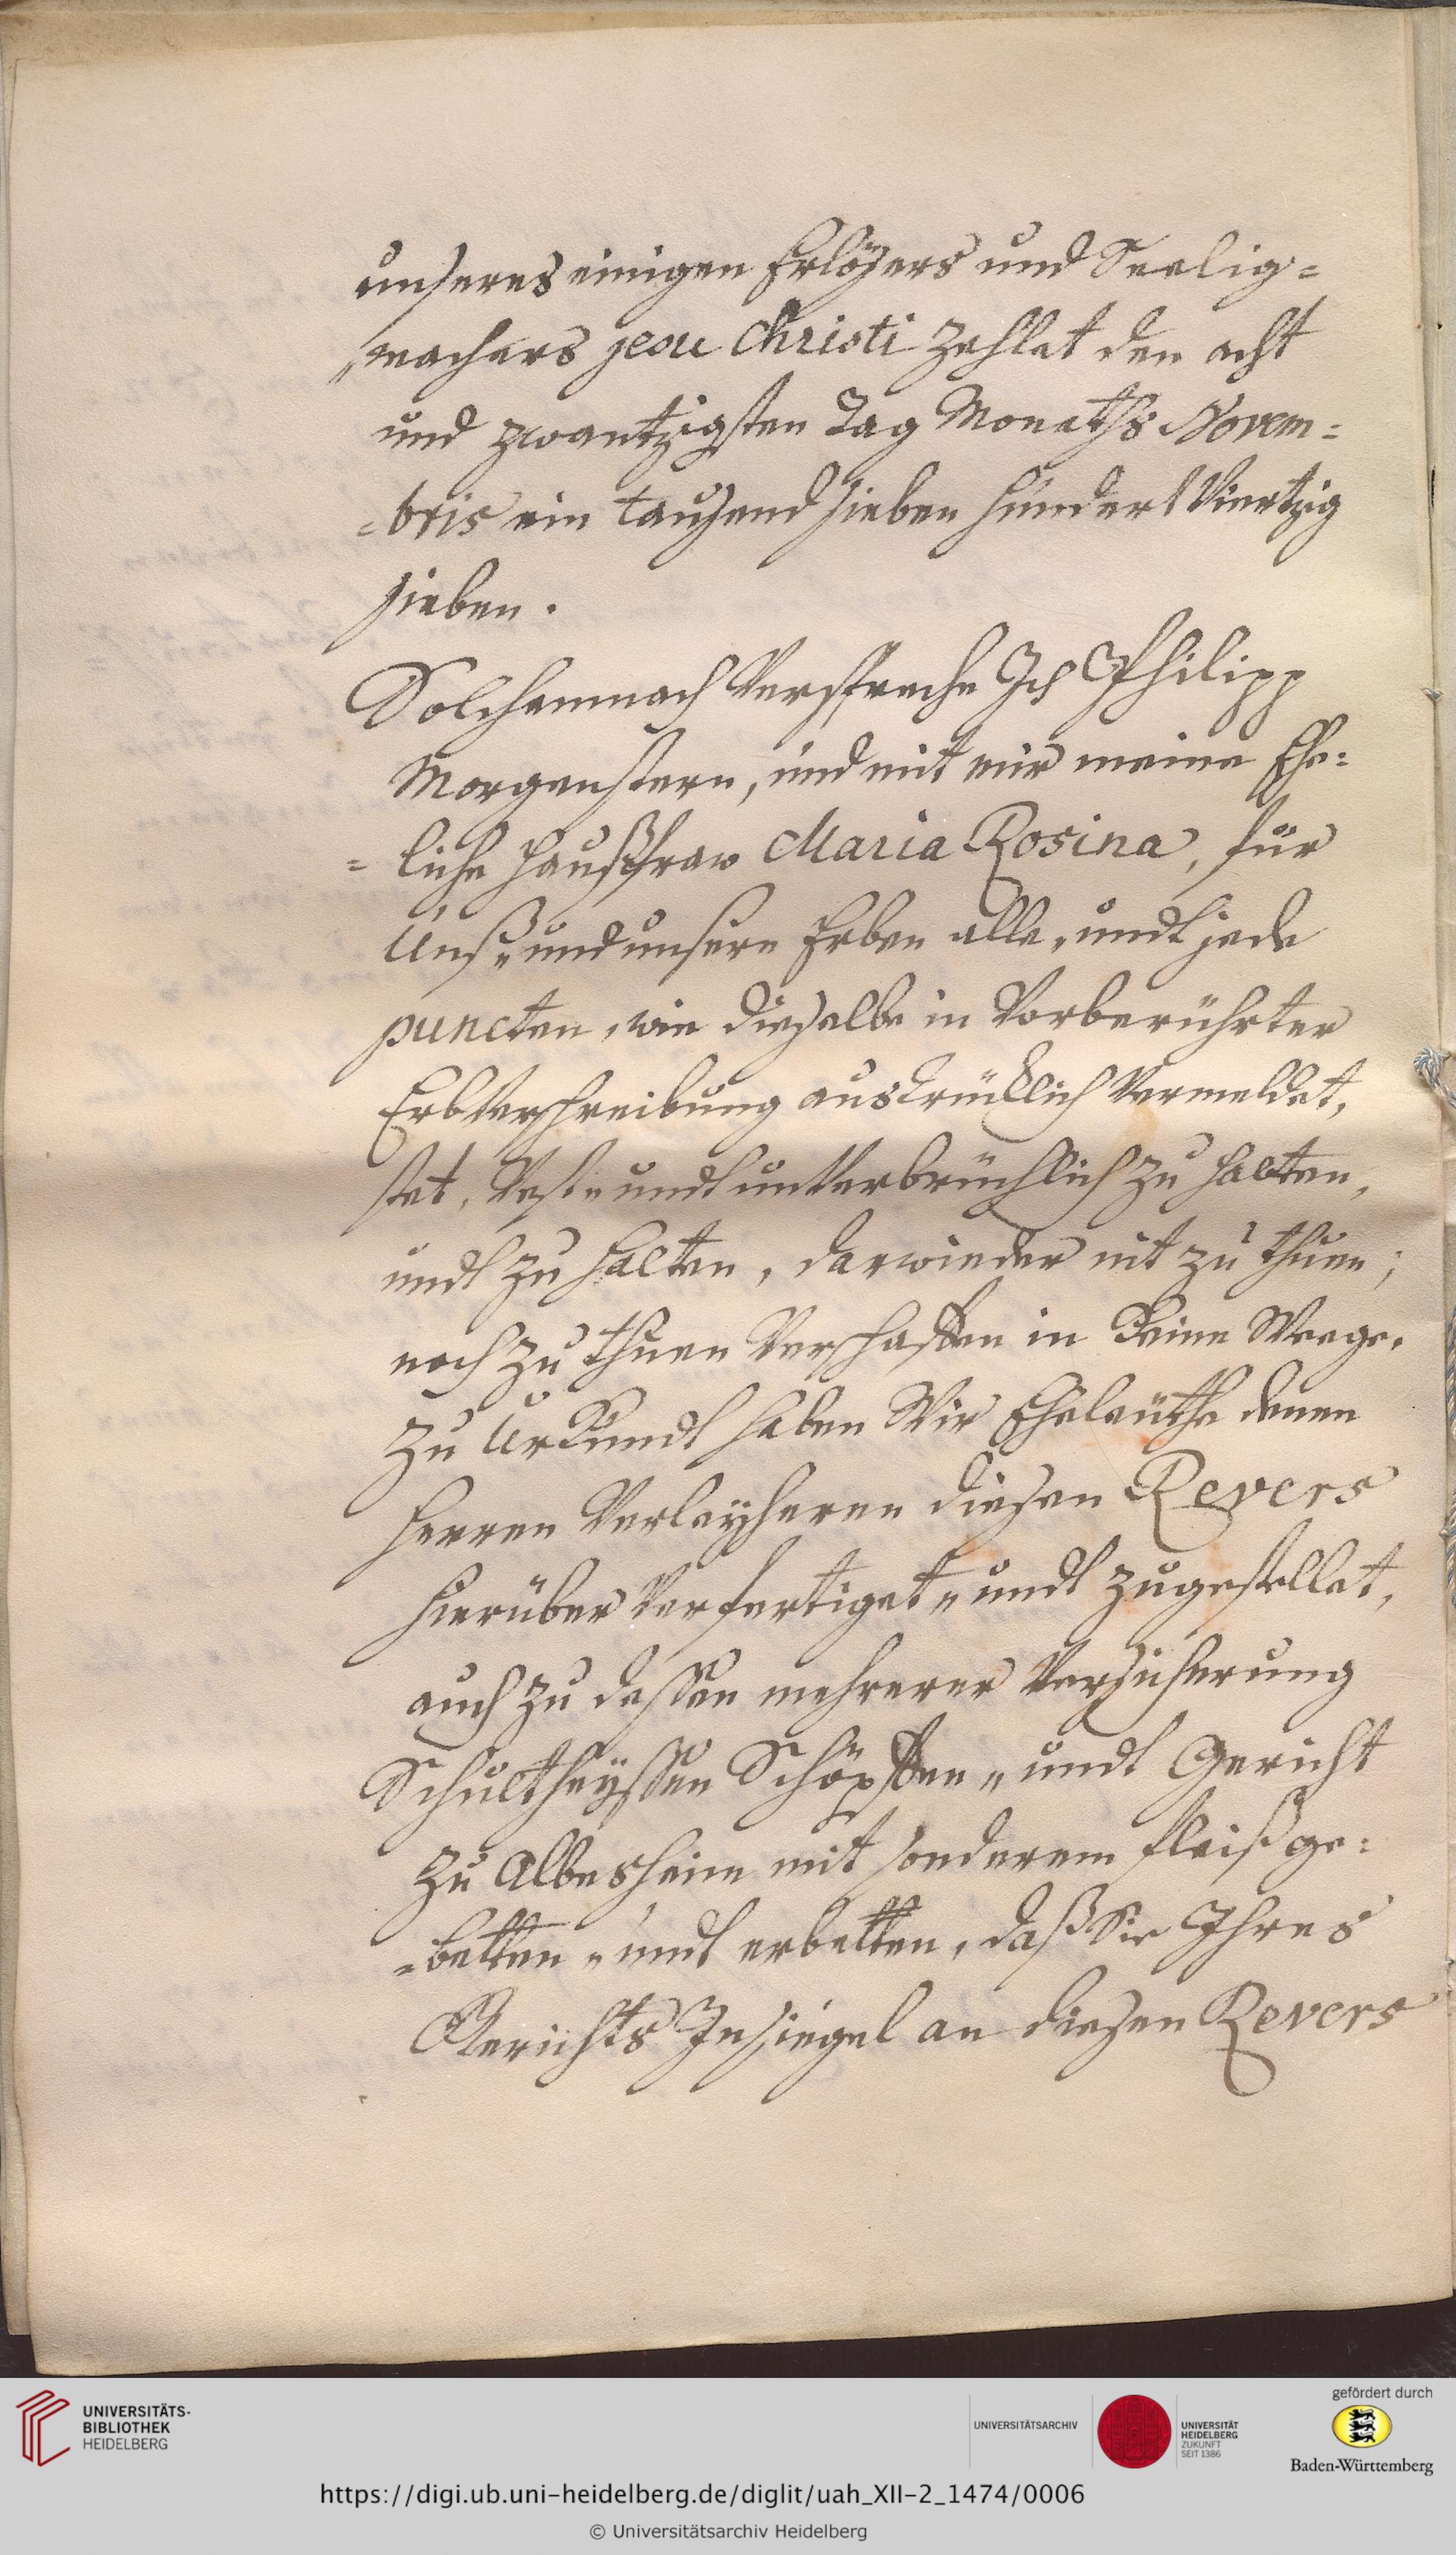 unseres einigen Erlößers und Seelig=
„machers jesu Christi zehlet den acht
und zwantzigsten Tag Monaths Novem=
=bris ein taußend sieben hundert Viertzig
sieben.
Solchemnach Verspreche Ich Philipp
Morgenstern, und mit mir meine Ehe=
=liche Haußfraw Maria Rosina, für
Unß„ und unsere Erben alle„ undt jede
puncten, wie dießelbe in Vorberührter
Erbverschreibung austrücklich Vermeldet,
stet, Vest„ undt unverbrüchlich zu halten,
undt zu halten, darwieder nit zu thuen;
noch zu thuen Verschaffen in Keine Weege.
Zu Urkundt haben Wir Eheleüthe denen
Herren Verleyheren dießen Revers
hierüber Verfertiget„ undt zugestellet,
auch zu dessen mehrerer Versicherung
Schultheyssen Schöpffen„ undt Gericht
zu Albesheim mit sonderem fleiß ge=
=betten„ undt erbetten, daß Sie Ihres
Gerichts Insiegel an dießen Revers
UNIVERSITÄTS-
BIBLIOTHEK
HEIDELBERG
UNIVERSITÄTSARCHIV
UNIVERSITÄT
HEIDELBERG
ZUKUNFT
SEIT 1386
gefördert durch
Baden-Württemberg
https://digi.ub.uni-heidelberg.de/diglit/uah_XII-2_1474/0006
© Universitätsarchiv Heidelberg